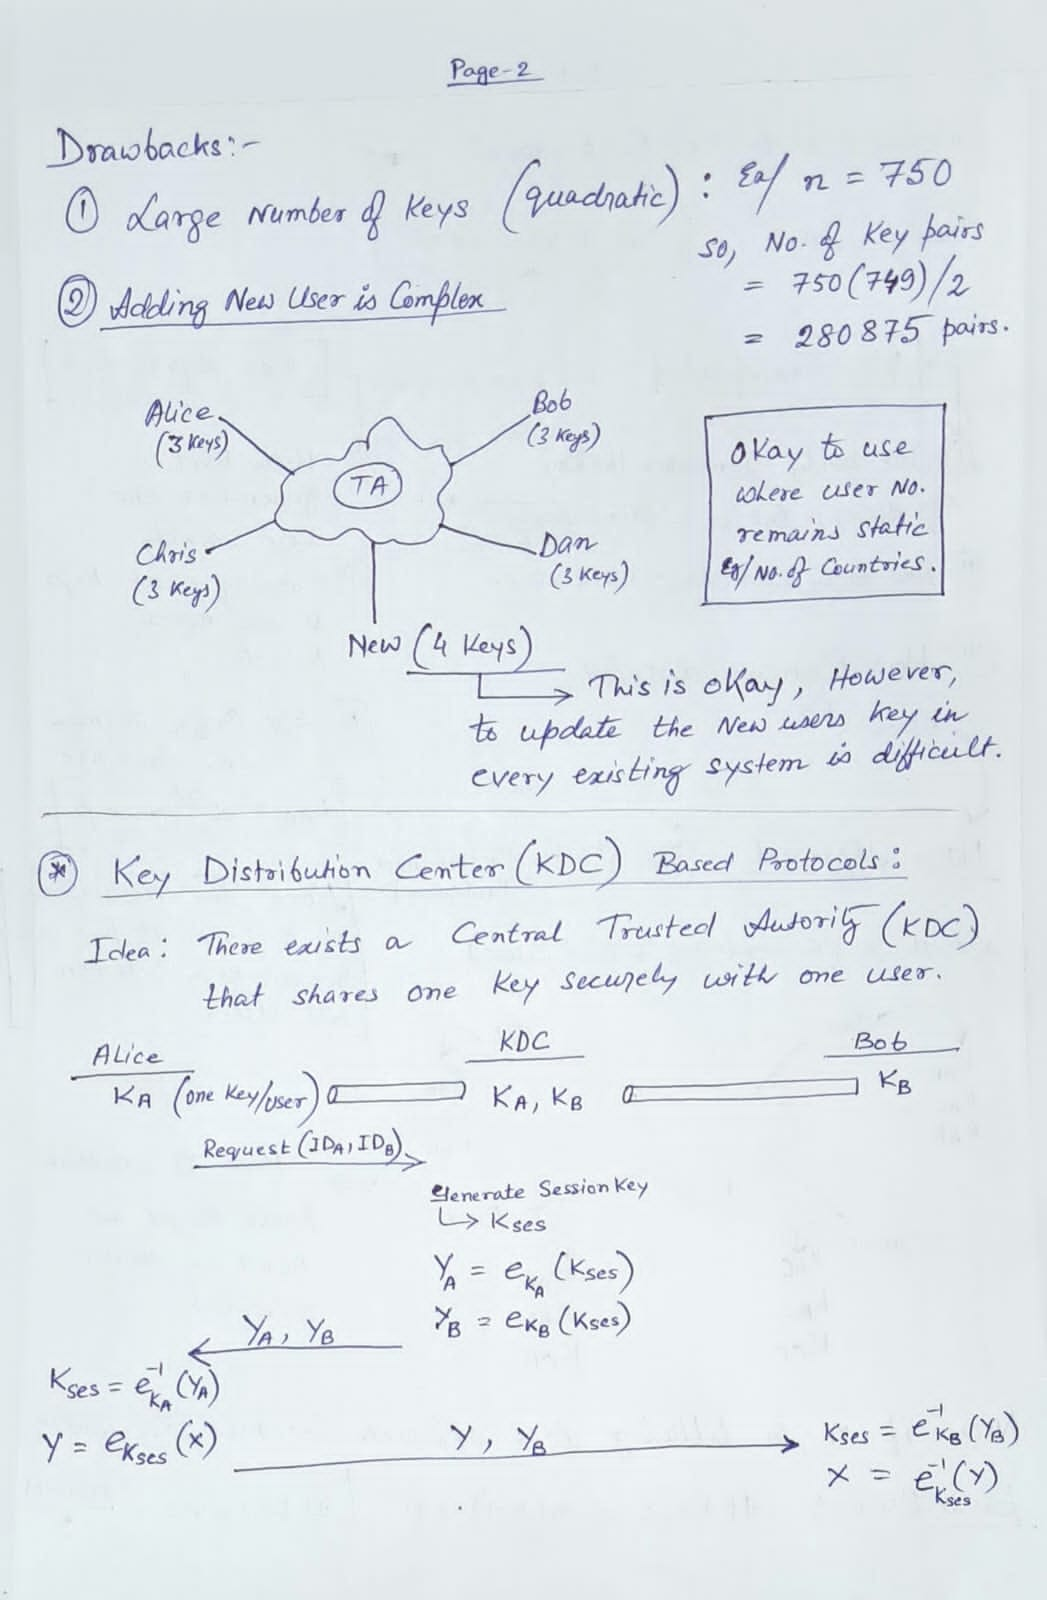 Page-2
Drawbacks:-
① Large Number of Keys (quadratic) : Ex/ n = 750
so, No. of Key pairs
= 750(749)/2
= 280875 pairs.
② Adding New User is Complex
Alice
(3 Keys)
Bob
(3 Keys)
TA
Chris
(3 Keys)
Dan
(3 Keys)
New (4 Keys)
Okay to use
where user No.
remains static
Eg/ No. of Countries.
This is okay, However,
to update the New users key in
every existing system is difficult.
* Key Distribution Center (KDC) Based Protocols:
Idea: There exists a Central Trusted Autority (KDC)
that shares one Key securely with one user.
Alice KDC Bob
KA (one key/user) KA, KB KB
Request (IDA, IDB)
Generate Session Key
↳ Kses
YA = eKA (Kses)
YB = eKB (Kses)
YA, YB
Kses = e⁻¹KA (YA)
Y = eKses (x)
Y, YB
Kses = e⁻¹KB (YB)
x = e⁻¹Kses (Y)